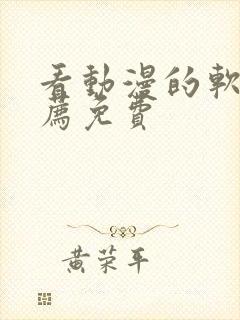 看動漫的軟
薦免費
黄荣平